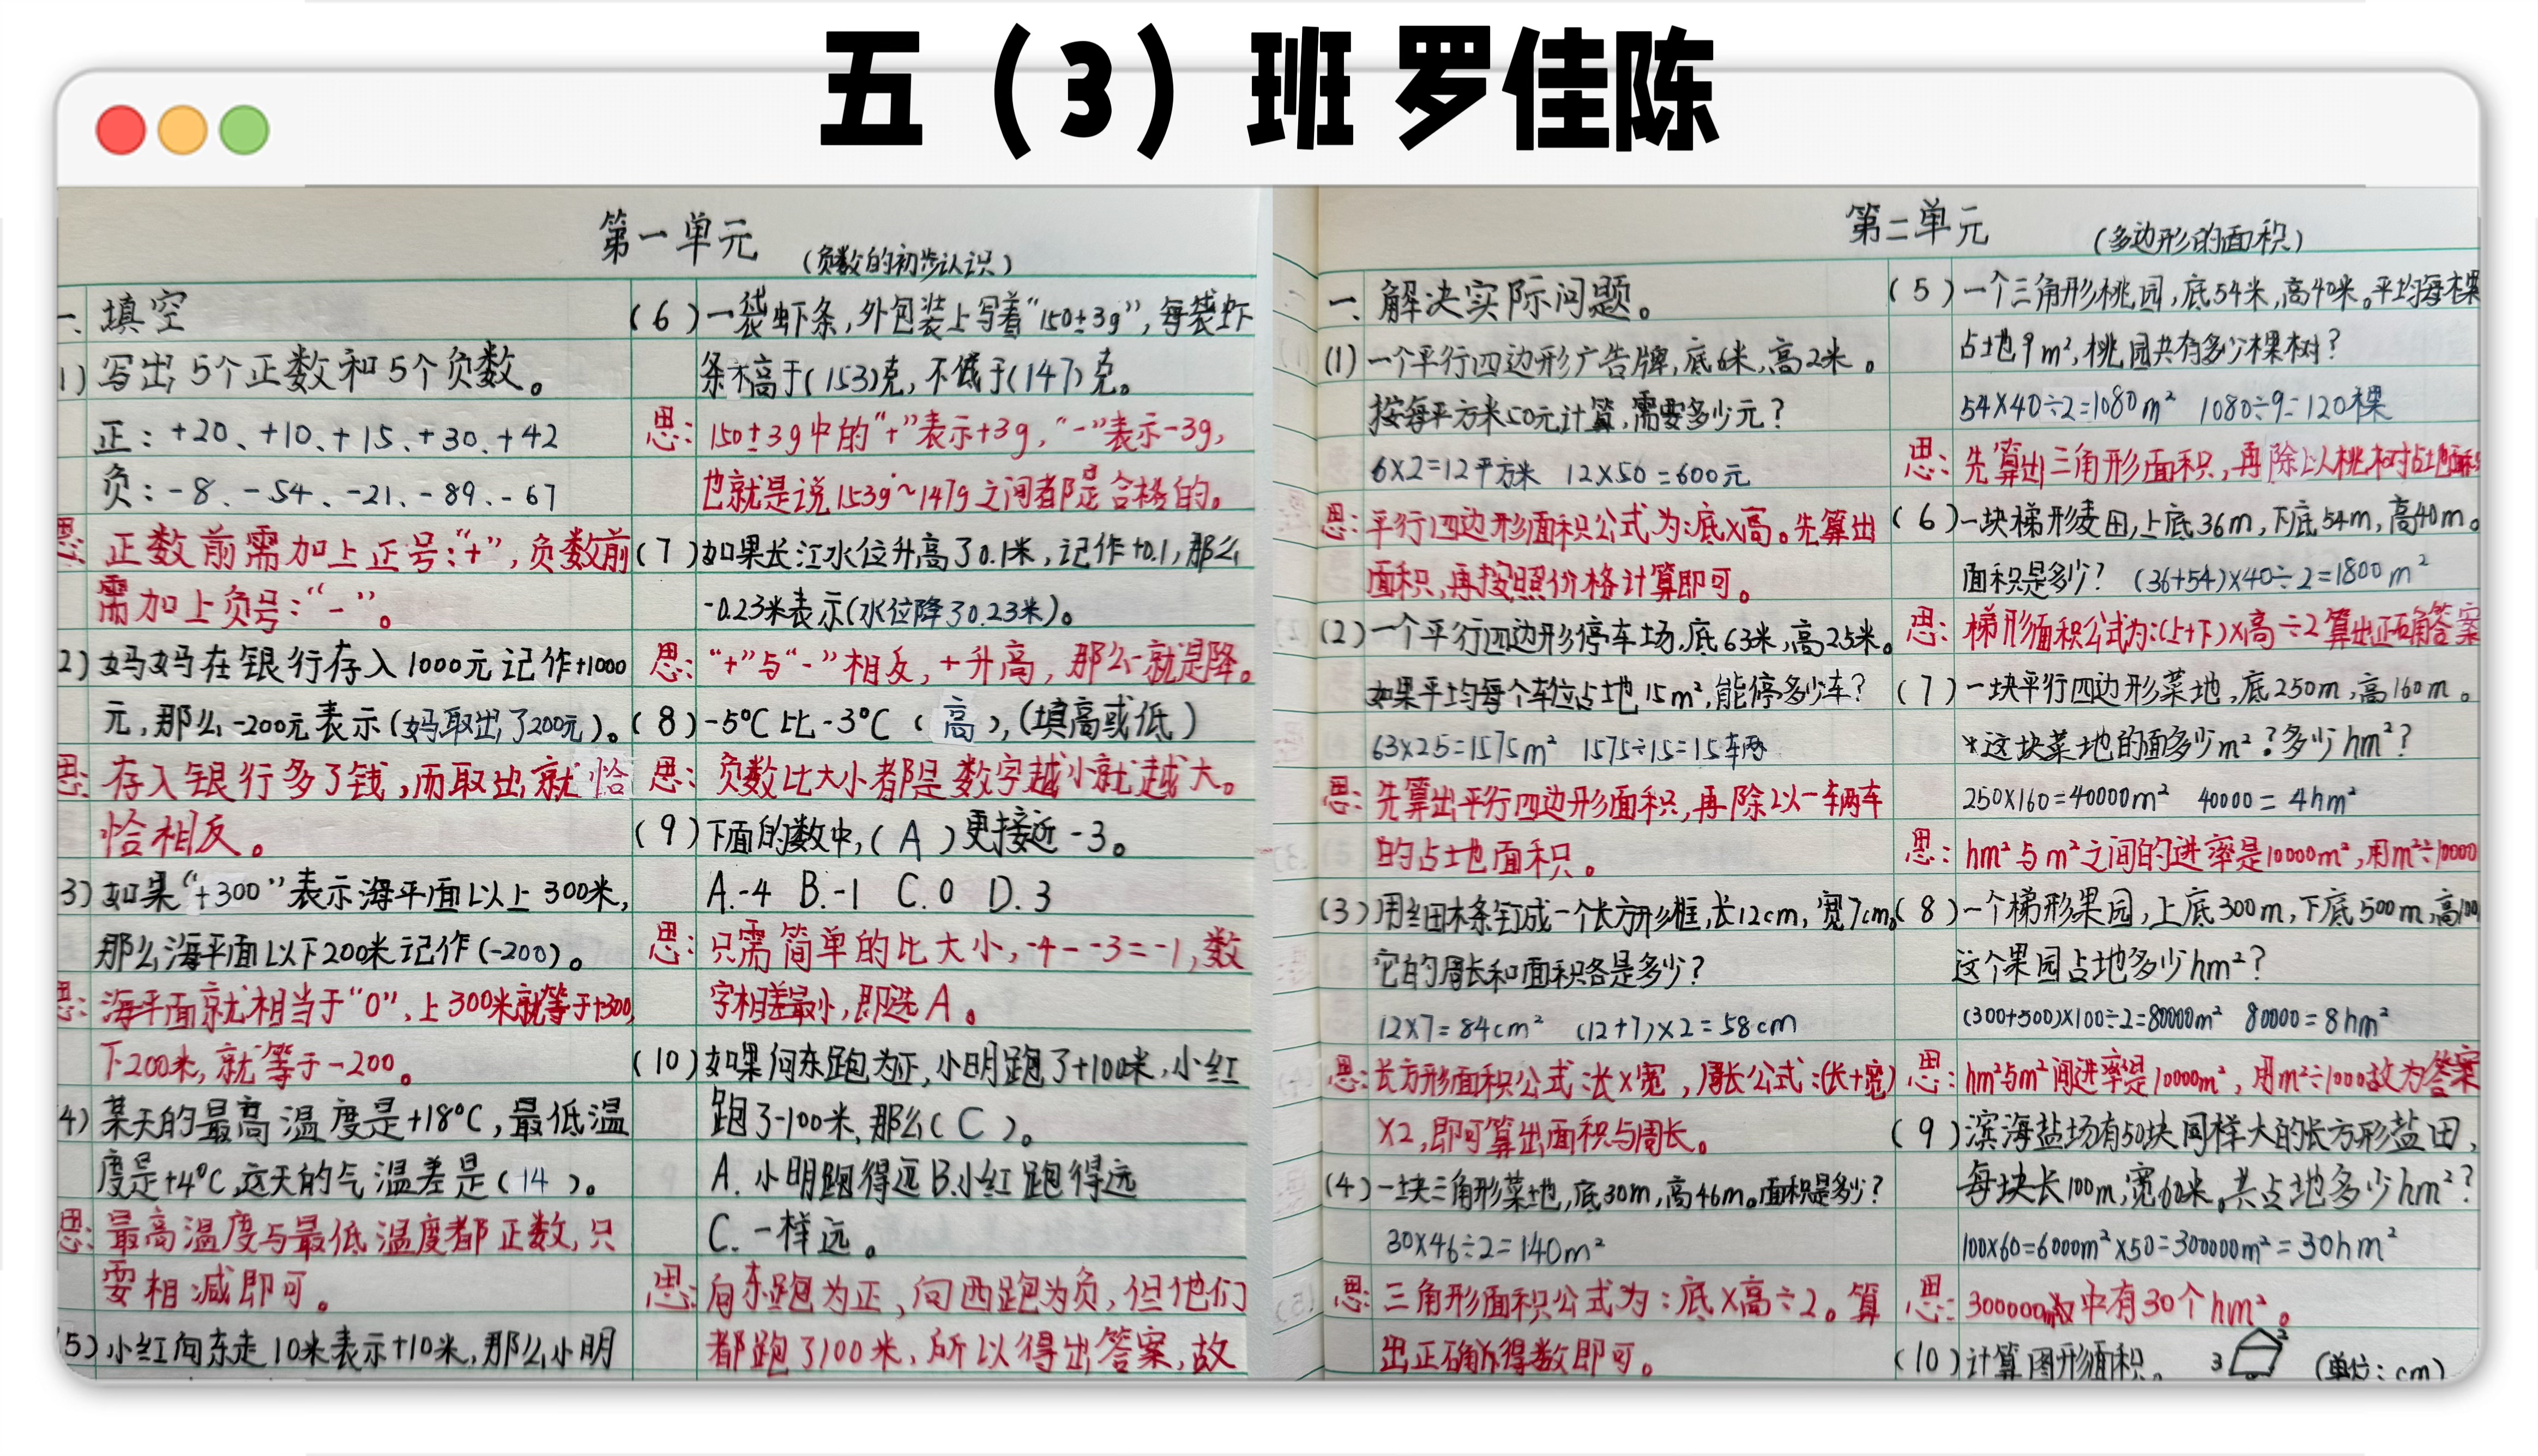 五（3）班 罗佳陈
第一单元
（负数的初步认识）
一、填空
1)写出5个正数和5个负数。
正：+20、+10、+15、+30、+42
负：-8、-54、-21、-89、-67
思：正数前需加上正号："+"，负数前
需加上负号："-"。
2)妈妈在银行存入1000元记作+1000
元，那么-200元表示(妈取出了200元)。
思：存入银行多了钱，而取出就恰
恰相反。
3)如果"+300"表示海平面以上300米，
那么海平面以下200米记作(-200)。
思：海平面就相当于"0"，上300米就等于+300，
下200米，就等于-200。
4)某天的最高温度是+18℃，最低温
度是+4℃，这天的气温差是(14)。
思：最高温度与最低温度都正数，只
要相减即可。
5)小红向东走10米表示+10米，那么小明
(6)一袋虾条，外包装上写着"150±3g"，每袋虾
条不高于(153)克，不低于(147)克。
思：150±3g中的"+"表示+3g，"-"表示-3g，
也就是说153g~147g之间都是合格的。
(7)如果长江水位升高了0.1米，记作+0.1，那么
-0.23米表示(水位降了0.23米)。
思："+"与"-"相反，+升高，那么-就是降。
(8)-5℃比-3℃(高)，(填高或低)
思：负数比大小都是数字越小就越大。
(9)下面的数中，(A)更接近-3。
A.-4 B.-1 C.0 D.3
思：只需简单的比大小，-4--3=-1，数
字相差最小，即选A。
(10)如果向东跑为正，小明跑了+100米，小红
跑了-100米，那么(C)。
A.小明跑得远B.小红跑得远
C.一样远。
思：向东跑为正，向西跑为负，但他们
都跑了100米，所以得出答案，故
第二单元
（多边形的面积）
一、解决实际问题。
(1)一个平行四边形广告牌，底6米，高2米。
按每平方米50元计算，需要多少元？
6×2=12平方米 12×50=600元
思：平行四边形面积公式为：底×高。先算出
面积，再按照价格计算即可。
(2)一个平行四边形停车场，底63米，高25米。
如果平均每个车位占地15m²，能停多少车？
63×25=1575m² 1575÷15=15车辆
思：先算出平行四边形面积，再除以一辆车
的占地面积。
(3)用细木条钉成一个长方形框，长12cm，宽7cm。
它的周长和面积各是多少？
12×7=84cm² (12+7)×2=58cm
思：长方形面积公式：长×宽，周长公式：(长+宽)
×2，即可算出面积与周长。
(4)一块三角形菜地，底30m，高46m。面积是多少？
30×46÷2=140m²
思：三角形面积公式为：底×高÷2。算
出正确得数即可。
(5)一个三角形桃园，底54米，高40米。平均每棵
占地9m²，桃园共有多少棵树？
54×40÷2=1080m² 1080÷9=120棵
思：先算出三角形面积，再除以桃树占地面积
(6)一块梯形麦田，上底36m，下底54m，高40m。
面积是多少？(36+54)×40÷2=1800m²
思：梯形面积公式为：(上+下)×高÷2算出正确答案
(7)一块平行四边形菜地，底250m，高160m。
*这块菜地的面多少m²？多少hm²？
250×160=40000m² 40000=4hm²
思：hm²与m²之间的进率是10000m²，用m²÷10000
(8)一个梯形果园，上底300m，下底500m，高100
这个果园占地多少hm²？
(300+500)×100÷2=80000m² 80000=8hm²
思：hm²与m²间进率是10000m²，用m²÷1000故为答案
(9)滨海盐场有50块同样大的长方形盐田，
每块长100m，宽60米。共占地多少hm²？
100×60=6000m²×50=300000m²=30hm²
思：300000m²中有30个hm²。
(10)计算图形面积。 3 2 (单位：cm)